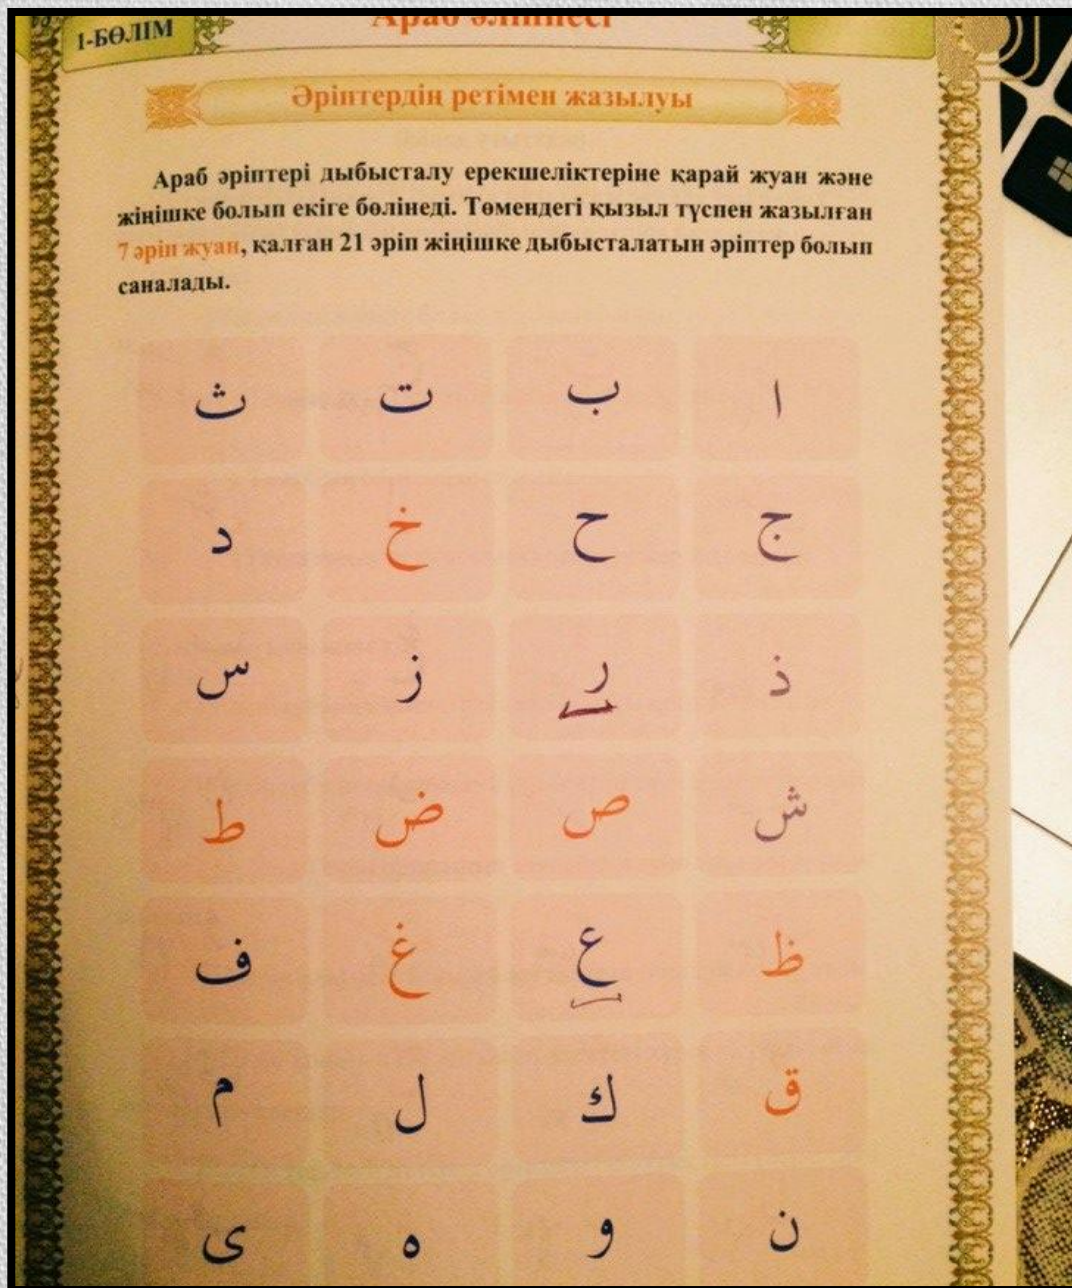 1-БӨЛІМ
Араб әліппесі
Әріптердің ретімен жазылуы
Араб әріптері дыбысталу ерекшеліктеріне қарай жуан және
жіңішке болып екіге бөлінеді. Төмендегі қызыл түспен жазылған
7 әріп жуан, қалған 21 әріп жіңішке дыбысталатын әріптер болып
саналады.
ا ب ت ث
ج ح خ د
ذ ر ز س
ش ص ض ط
ظ ع غ ف
ق ك ل م
ن و ه ى